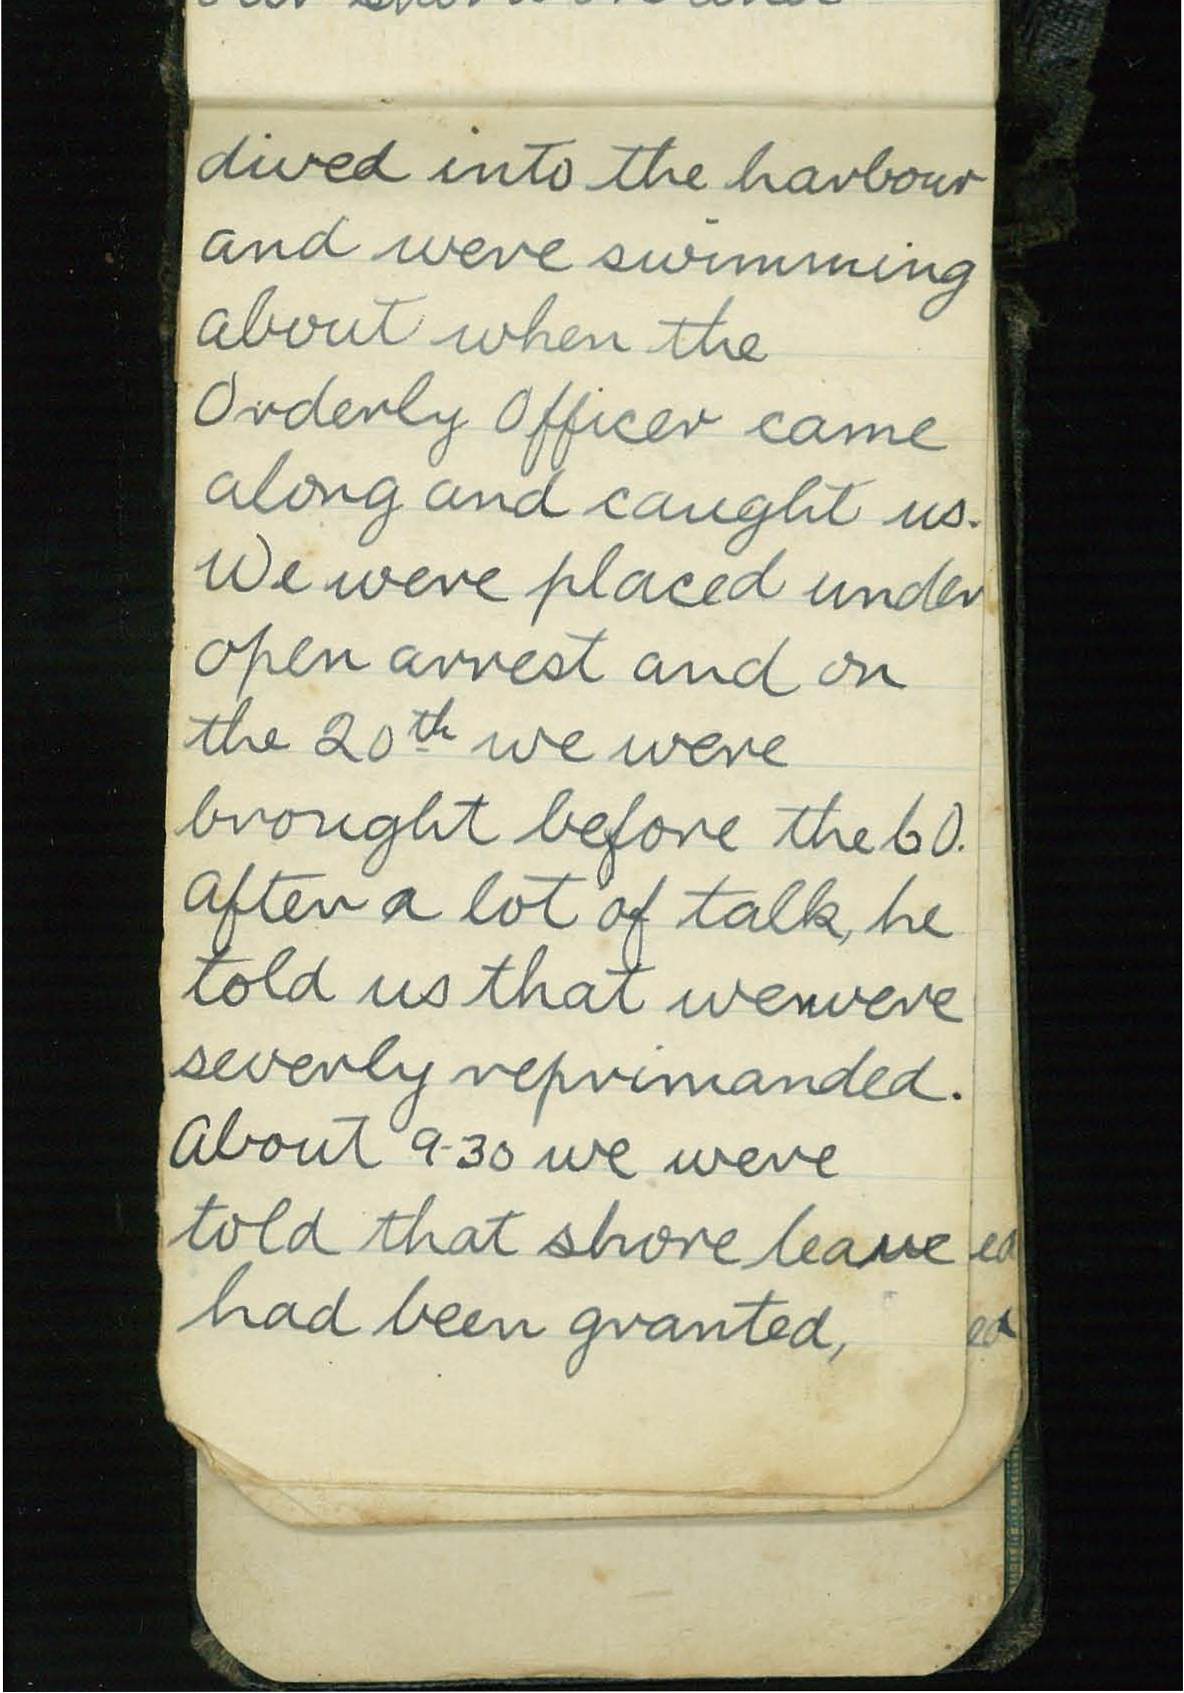 dived into the harbour
and were swimming
about when the
Orderly Officer came
along and caught us.
We were placed under
open arrest and on
the 20th we were
brought before the CO.
After a lot of talk, he
told us that we were
severly reprimanded.
About 9-30 we were
told that shore leave
had been granted,